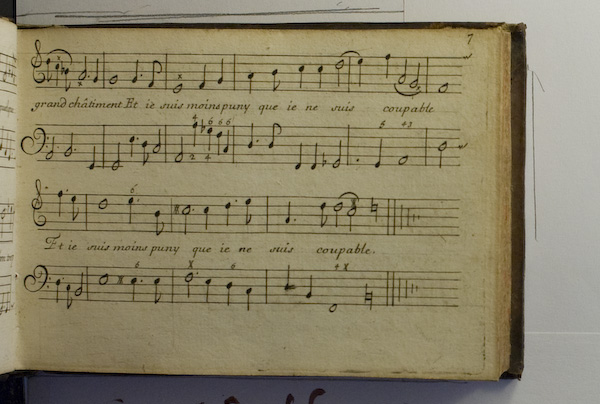 7
grand châtiment Et ie suis moins puny que ie ne suis coupable
4 6 6 6 4 4 3
2 4
6
Et ie suis moins puny que ie ne suis coupable.
6 x 6 4 x